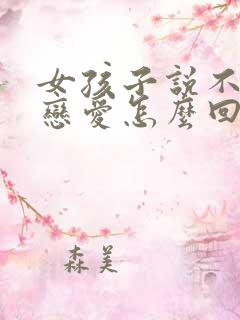 女孩子說不
戀愛怎麼回
森美